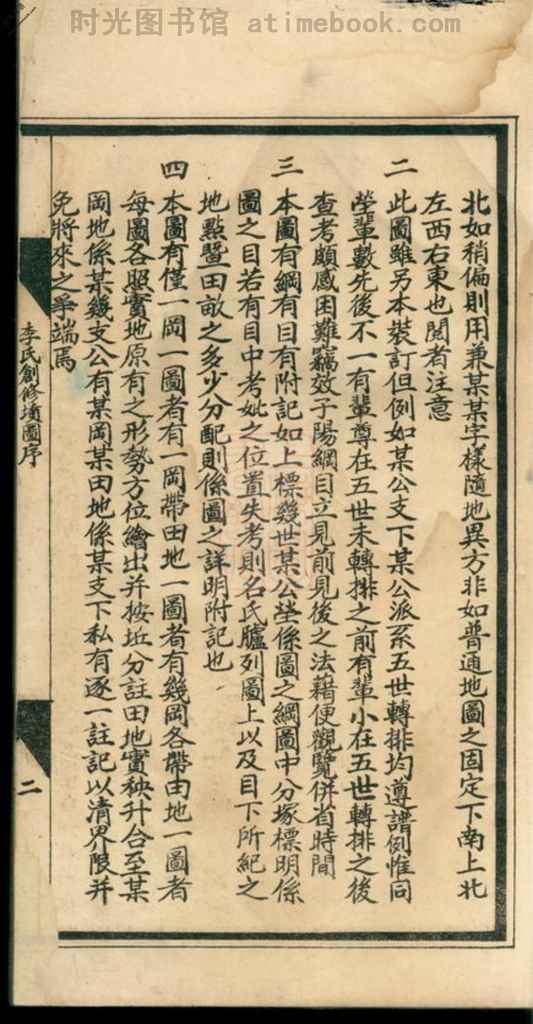 时光图书馆 atimebook.com
北如稍偏則用兼某某字樣隨地異方非如普通地圖之固定下南上北
左西右東也閱者注意
二 此圖雖另本裝訂但例如某公支下某公派系五世轉排均遵譜例惟同
塋輩數先後不一有輩尊在五世未轉排之前有輩小在五世轉排之後
查考頗感困難竊效子陽綱目立見前見後之法藉便觀覽併省時間
三 本圖有綱有目有附記如上標幾世某公塋係圖之綱圖中分塚標明係
圖之目若有目中考妣之位置失考則名氏臚列圖上以及目下所紀之
地點暨田畝之多少分配則係圖之詳明附記也
四 本圖有僅一岡一圖者有一岡帶田地一圖者有幾岡各帶田地一圖者
每圖各照實地原有之形勢方位繪出并按坵分註田地實秧升合至某
岡地係某幾支公有某岡某田地係某支下私有逐一註記以清界限并
免將來之爭端焉
李氏創修墳圖序
二